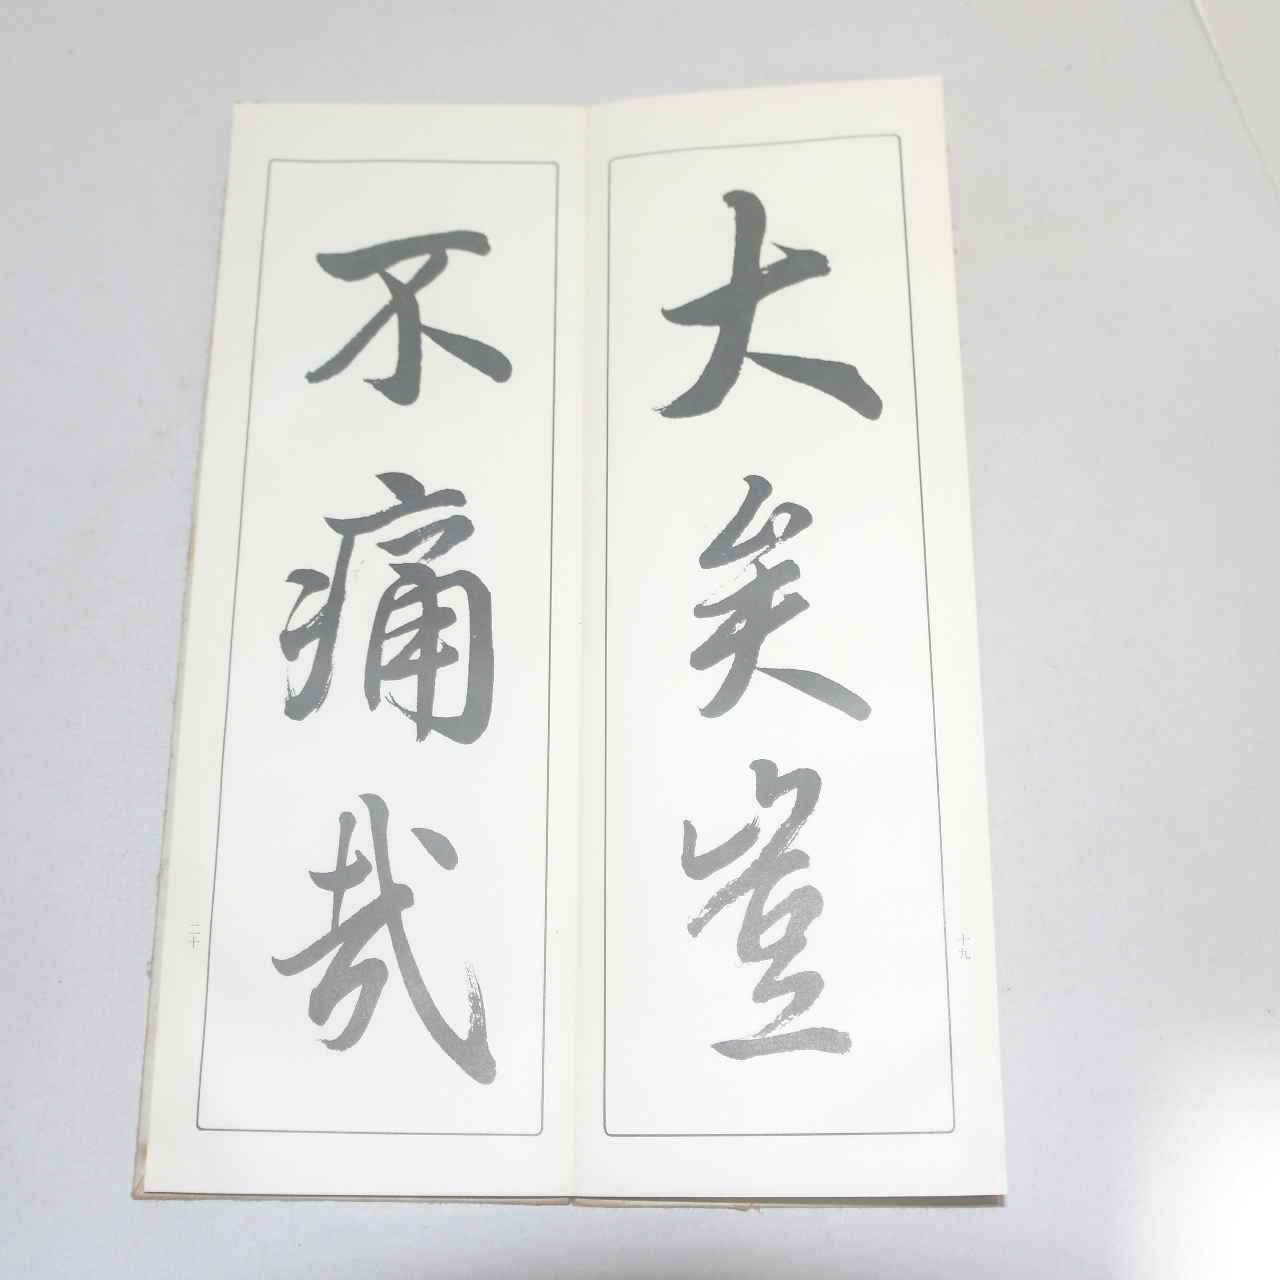 大矣豈
十九
不痛哉
二十